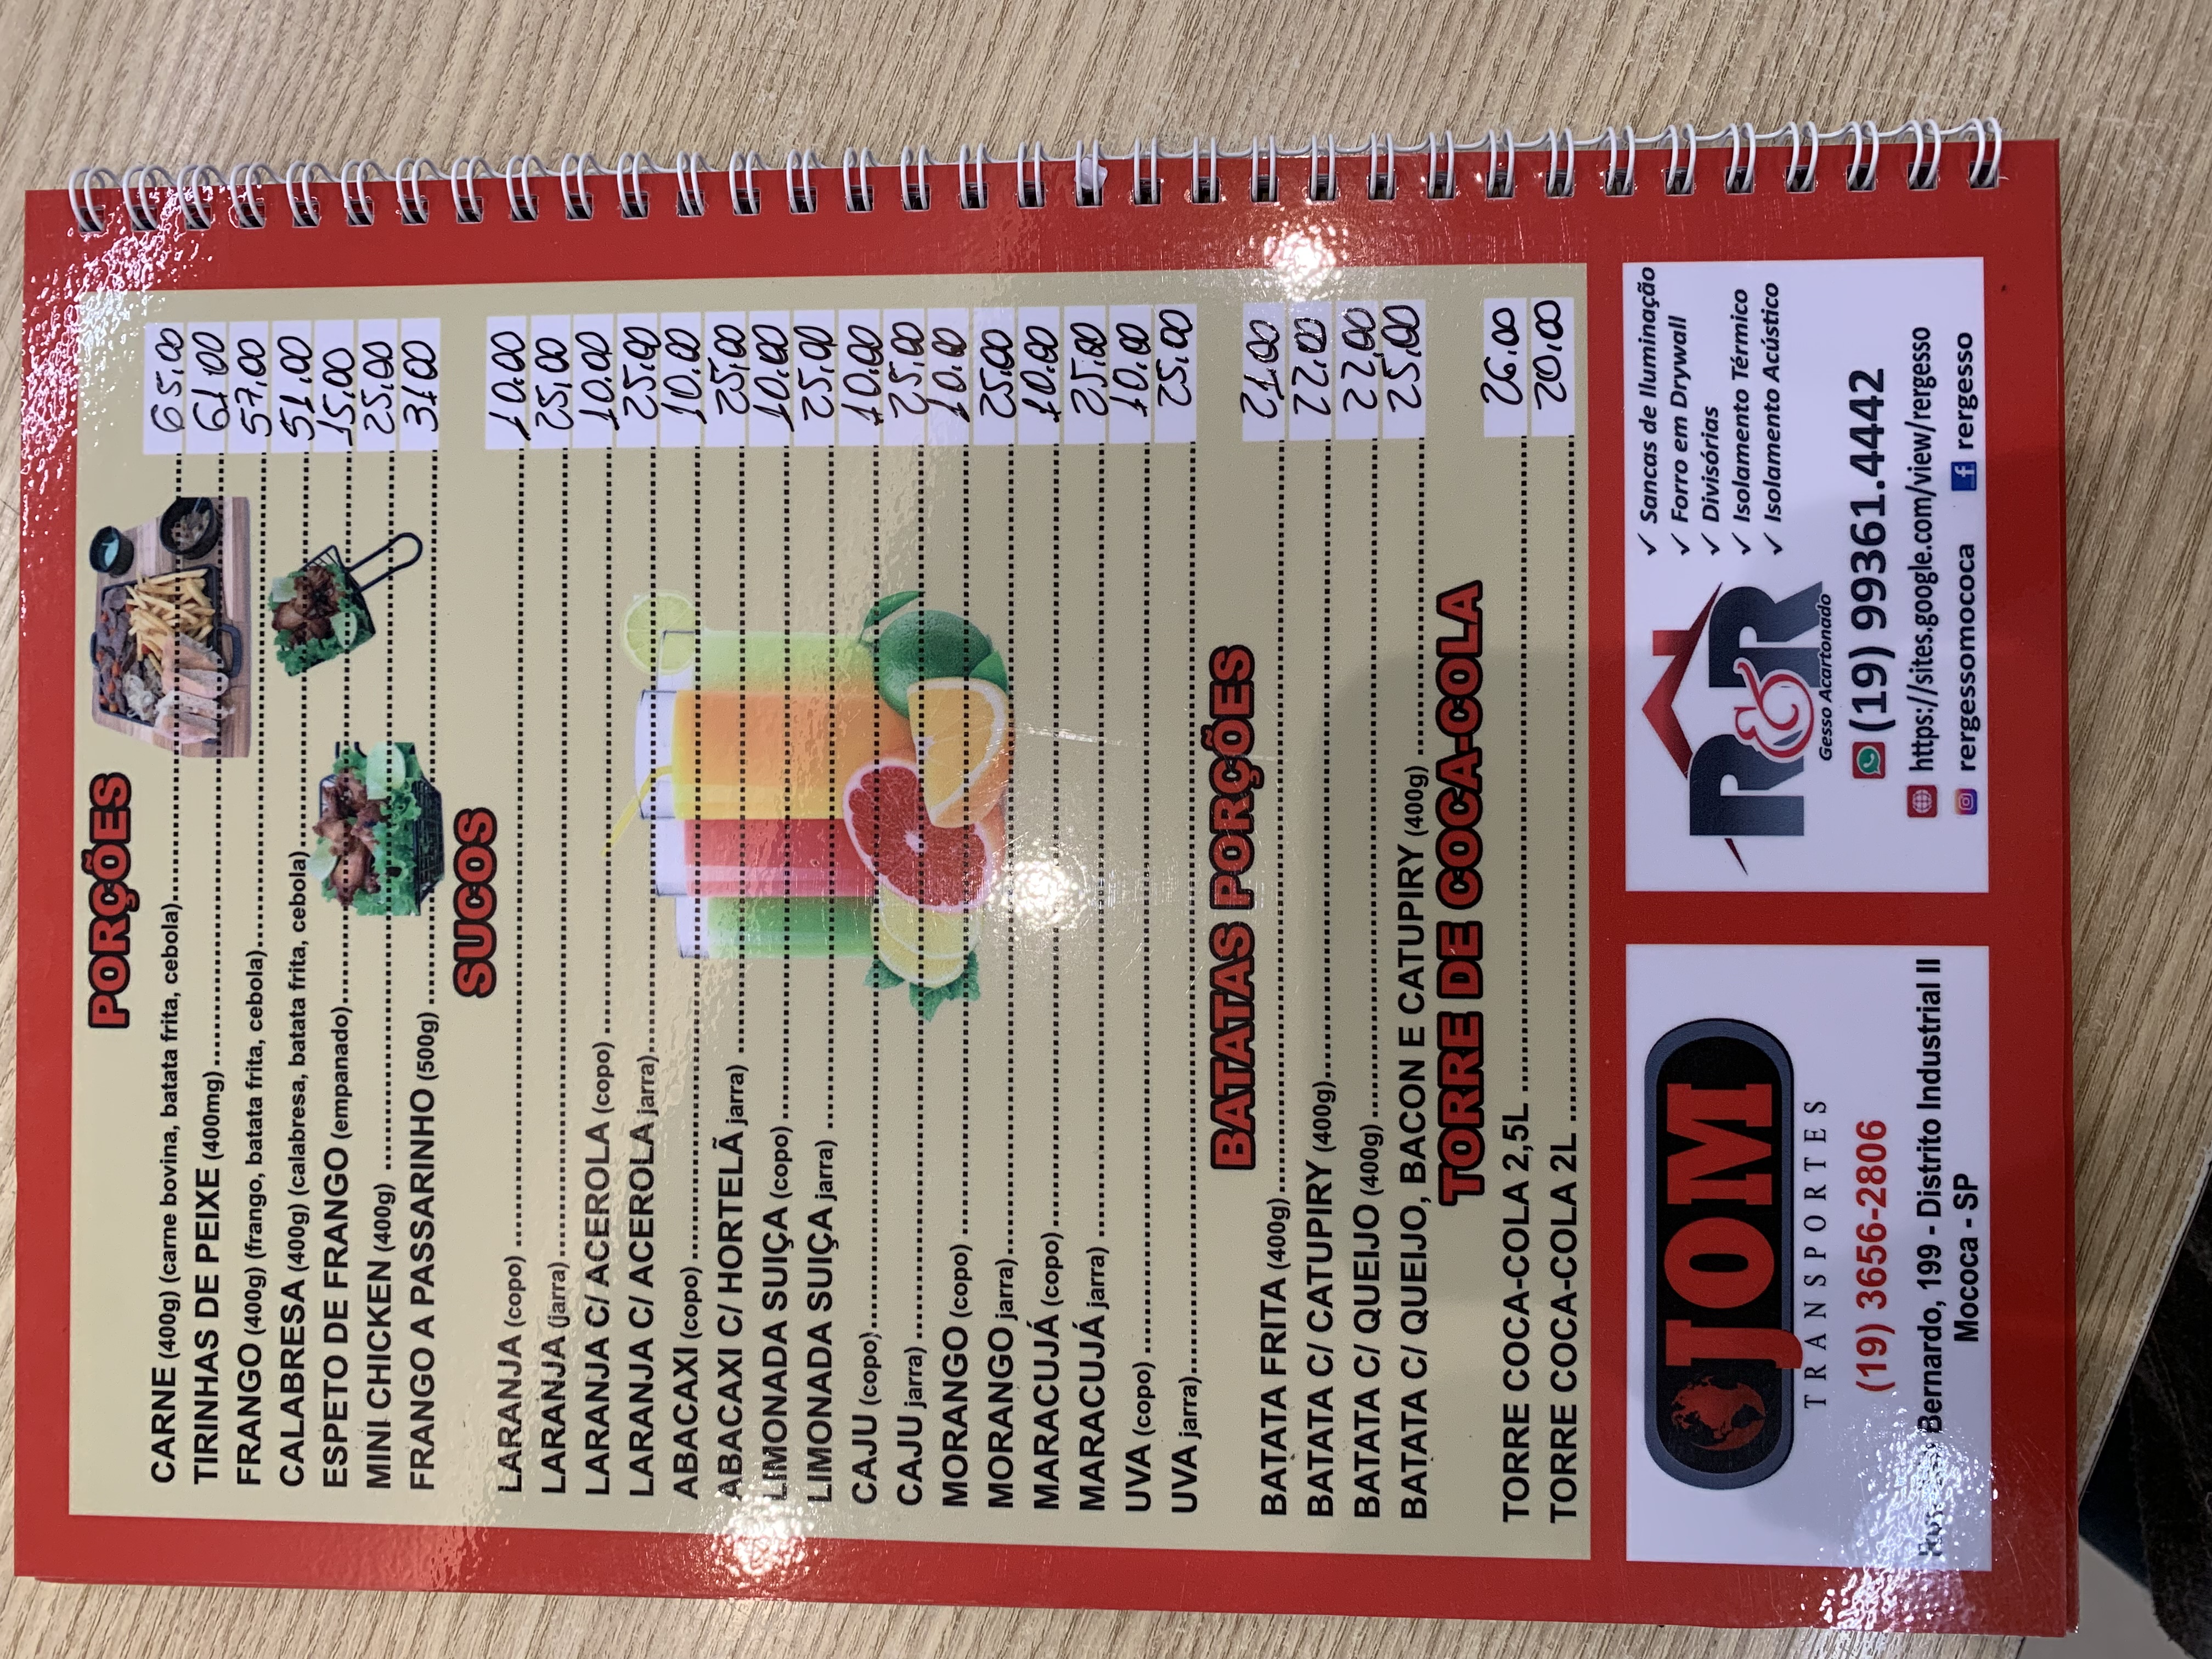 PORÇÕES
CARNE (400g) (carne bovina, batata frita, cebola) 65,00
TIRINHAS DE PEIXE (400mg) 61,00
FRANGO (400g) (frango, batata frita, cebola) 57,00
CALABRESA (400g) (calabresa, batata frita, cebola) 51,00
ESPETO DE FRANGO (empanado) 15,00
MINI CHICKEN (400g) 25,00
FRANGO A PASSARINHO (500g) 31 00
SUCOS
LARANJA (copo) 10.00
LARANJA (jarra) 25,00
LARANJA C/ ACEROLA (copo) 10.00
LARANJA C/ ACEROLA jarra) 25.00
ABACAXI (copo) 10.00
ABACAXI C/ HORTELÃ jarra) 25,00
LIMONADA SUIÇA (copo) 10.00
LIMONADA SUIÇA jarra) 25,00
CAJU (copo) 10.00
CAJU jarra) 25,00
MORANGO (copo) 10.00
MORANGO jarra) 25.00
MARACUJÁ (copo) 10.00
MARACUJÁ jarra) 25,00
UVA (copo) 10.00
UVA jarra) 25,00
BATATAS PORÇÕES
BATATA FRITA (400g) 21.00
BATATA C/ CATUPIRY (400g) 22,00
BATATA C/ QUEIJO (400g) 22,00
BATATA C/ QUEIJO, BACON E CATUPIRY (400g) 25,00
TORRE DE COCA-COLA
TORRE COCA-COLA 2,5L 26.00
TORRE COCA-COLA 2L 20,00
JOM
TRANSPORTES
(19) 3656-2806
Bernardo, 199 - Distrito Industrial II
Mococa - SP
R&R
Gesso Acartonado
✓ Sancas de Iluminação
✓ Forro em Drywall
✓ Divisórias
✓ Isolamento Térmico
✓ Isolamento Acústico
(19) 99361.4442
https://sites.google.com/view/rergesso
rergessomococa rergesso